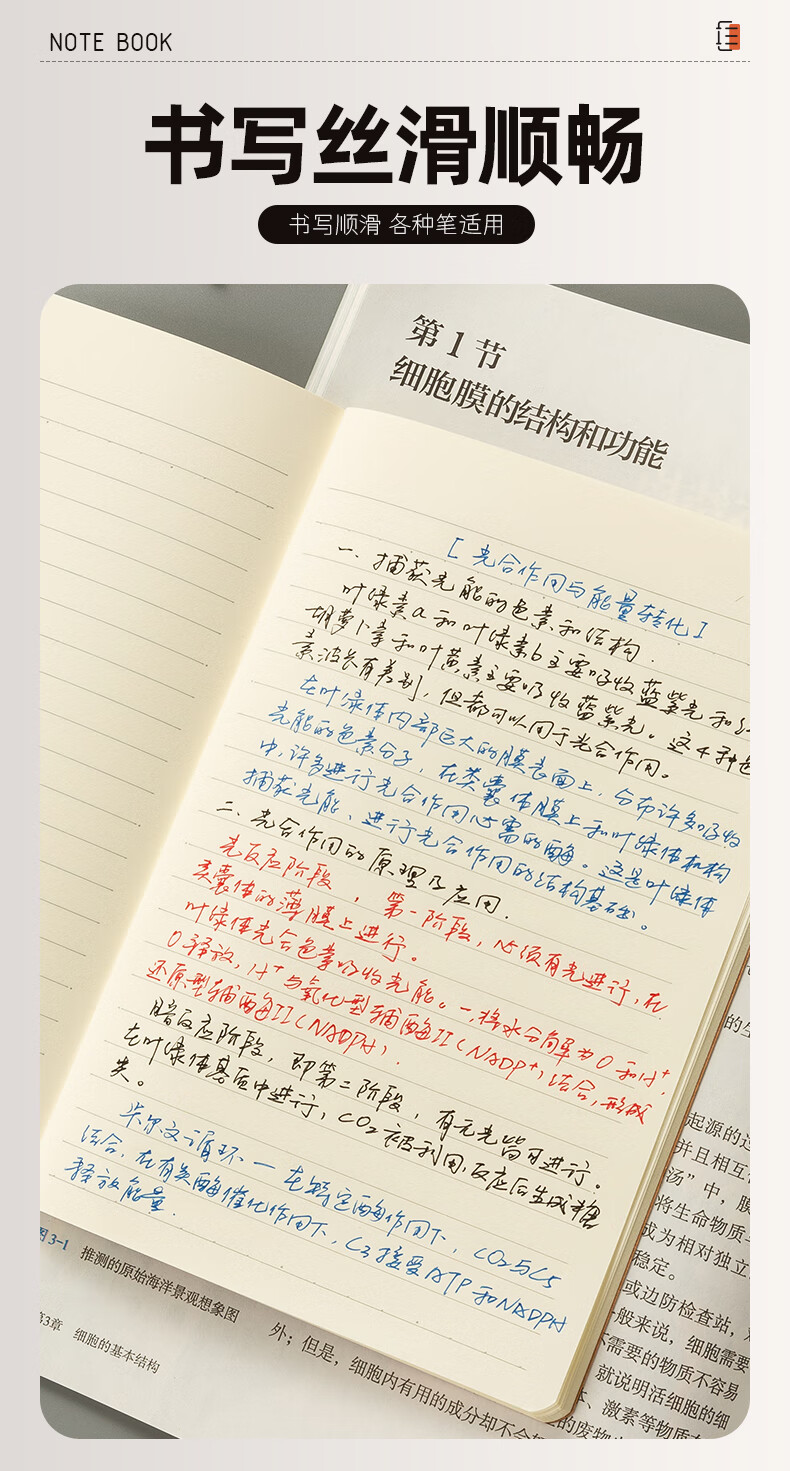 NOTE BOOK
书写丝滑顺畅
书写顺滑 各种笔适用
第1节
细胞膜的结构和功能
[光合作用与能量转化]
一、捕获光能的色素和结构.
叶绿素a和叶绿素b主要吸收蓝紫光和红
胡萝卜素和叶黄素主要吸收蓝紫光。这4种色
素波长有差别，但都可以用于光合作用。
在叶绿体内部巨大的膜表面上，分布许多吸收
光能的色素分子，在类囊体膜上和叶绿体机构
中，许多进行光合作用必需的酶。这是叶绿体
捕获光能、进行光合作用的结构基础。
二、光合作用的原理及应用.
光反应阶段，第一阶段，必须有光进行，在
类囊体的薄膜上进行。
叶绿体光合色素吸收光能。一，将水分解为O和H+，
O释放，H+与氧化型辅酶II(NADP+)结合，形成
还原型辅酶II(NADPH).
暗反应阶段，即第二阶段，有无光皆可进行。
在叶绿体基质中进行，CO2被利用，反应后生成糖
类。
卡尔文循环一在特定酶作用下，CO2与C5
结合，在有关酶催化作用下，C3接受ATP和NADPH
释放能量.
图3-1 推测的原始海洋景观想象图
第3章 细胞的基本结构
的生
起源的过
并且相互
汤”中，膜
将生命物质与
成为相对独立
稳定。
或边防检查站，对
一般来说，细胞需要
不需要的物质不容易
就说明活细胞的细
、激素等物质
的废物
外；但是，细胞内有用的成分却不会